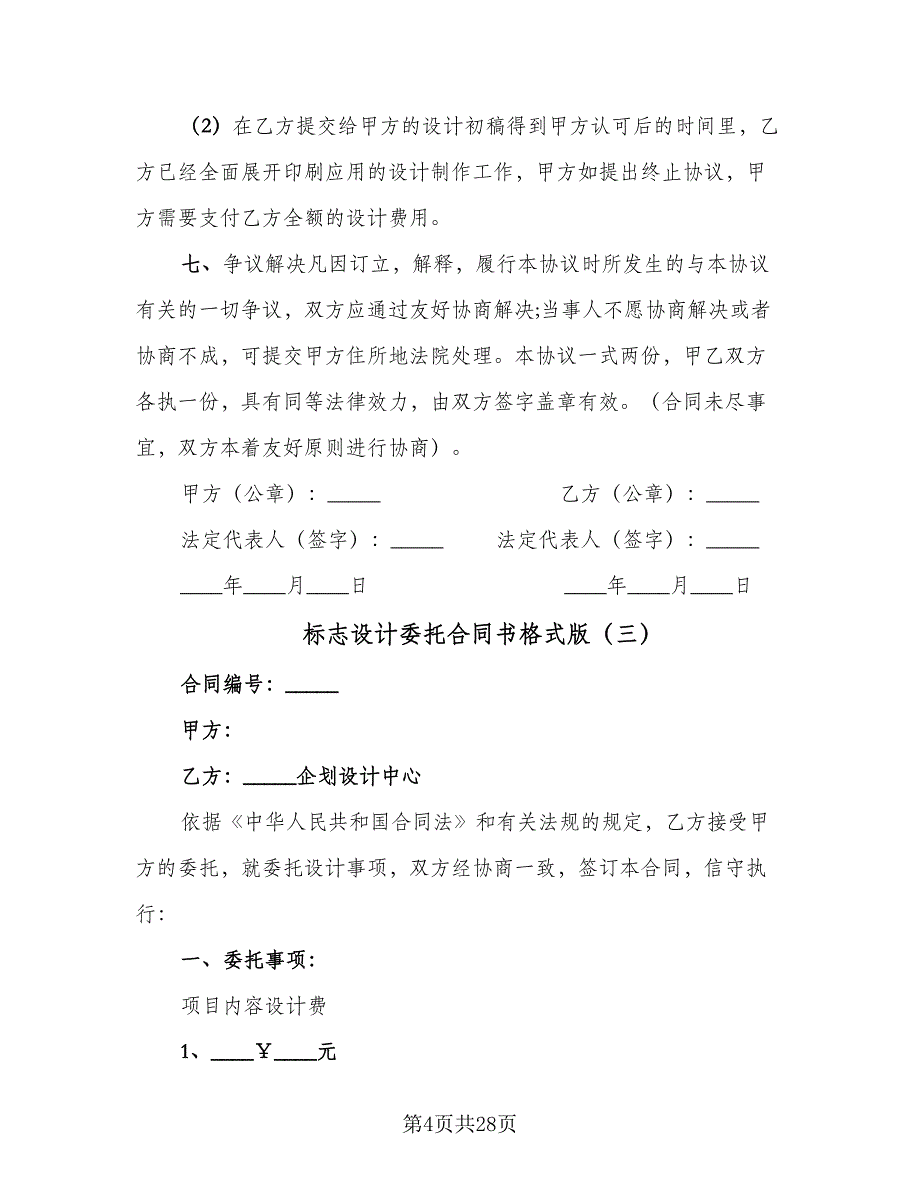 （2）在乙方提交给甲方的设计初稿得到甲方认可后的时间里，乙
方已经全面展开印刷应用的设计制作工作，甲方如提出终止协议，甲
方需要支付乙方全额的设计费用。
七、争议解决凡因订立，解释，履行本协议时所发生的与本协议
有关的一切争议，双方应通过友好协商解决;当事人不愿协商解决或者
协商不成，可提交甲方住所地法院处理。本协议一式两份，甲乙双方
各执一份，具有同等法律效力，由双方签字盖章有效。（合同未尽事
宜，双方本着友好原则进行协商）。
甲方（公章）：_____ 乙方（公章）：_____
法定代表人（签字）：_____ 法定代表人（签字）：_____
____年____月____日 ____年____月____日
标志设计委托合同书格式版（三）
合同编号：_____
甲方：
乙方：_____企划设计中心
依据《中华人民共和国合同法》和有关法规的规定，乙方接受甲
方的委托，就委托设计事项，双方经协商一致，签订本合同，信守执
行：
一、委托事项：
项目内容设计费
1、____￥____元
第4页共28页